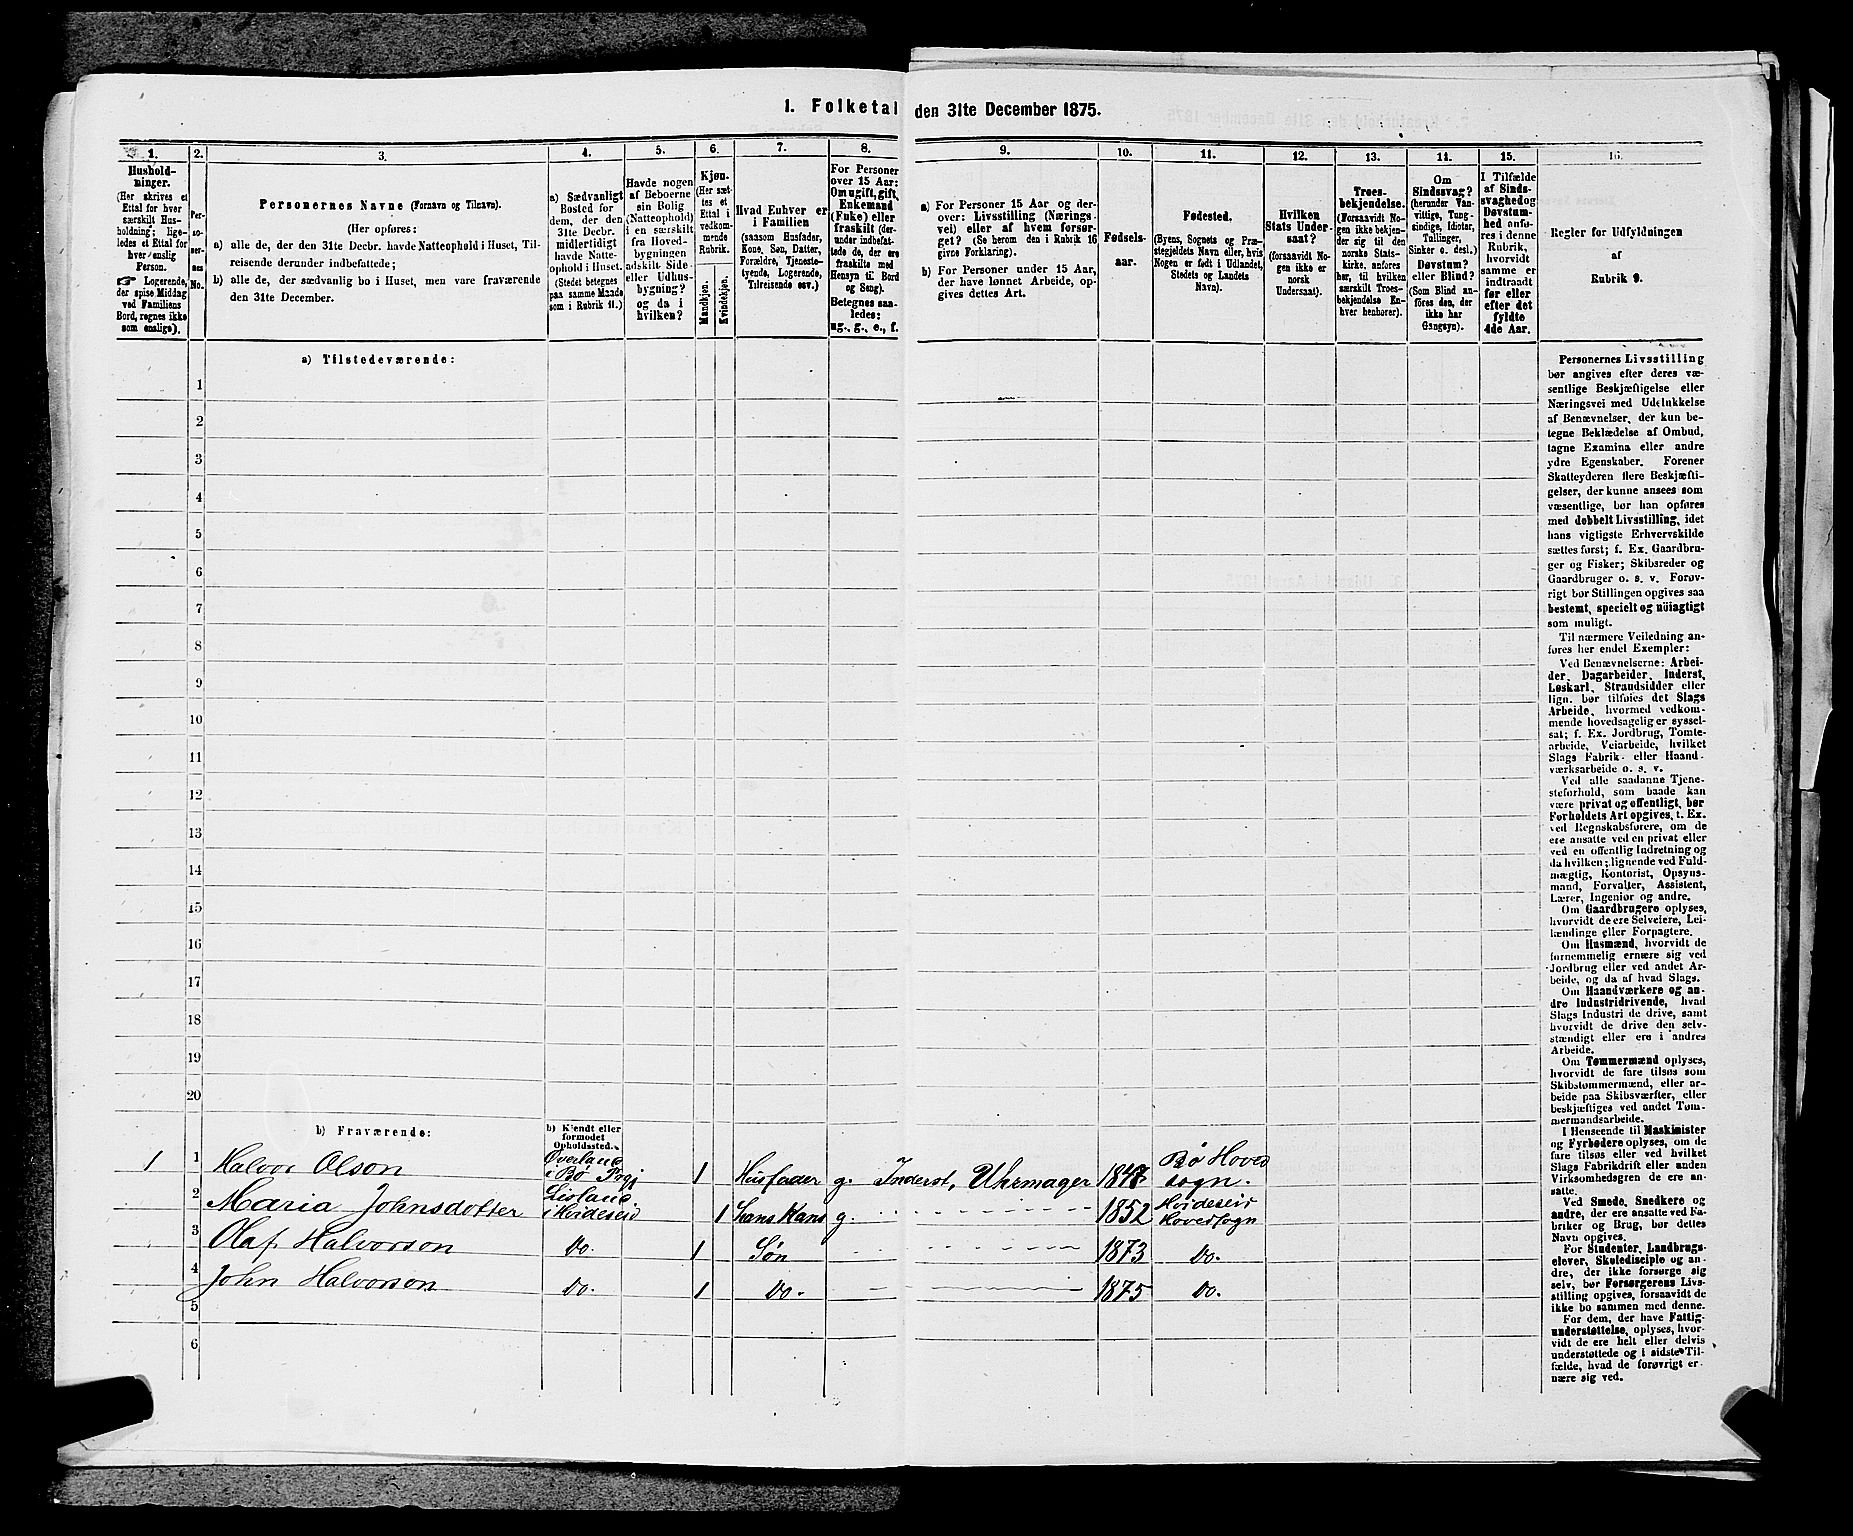 1. Folketal den 31te December 1875.
1.
Hushold-
ninger.
(Her skrives et
Ettal for hver
særskilt Hus-
holdning; lige-
ledes et Ettal for
hver enslig
Person.
☞ Logerende,
der spise Middag
ved Familiens
Bord, regnes ikke
som enslige).
2.
Per-
so-
ner-
nes
No.
3.
Personernes Navne (Fornavn og Tilnavn).
(Her opføres:
a) alle de, der den 31te Decbr. havde Natteophold i Huset, Til-
reisende derunder indbefattede;
b) alle de, der sædvanlig bo i Huset, men vare fraværende
den 31te December.
4.
a) Sædvanligt
Bosted for
dem, der den
31te Decbr.
midlertidigt
havde Natte-
ophold i Huset.
(Stedet betegnes
paa samme Maade
som i Rubrik 11.)
5.
Havde nogen
af Beboerne
sin Bolig
(Natteophold)
i en særskilt
fra Hoved-
bygningen
adskilt Side-
eller Udhus-
bygning?
og da i
hvilken?
6.
Kjøn.
(Her sæt-
tes et
Ettal i
vedkom-
mende
Rubrik.
Mandkjøn.
Kvindekjøn.
7.
Hvad Enhver er
i Familien
(saasom Husfader,
Kone, Søn, Datter,
Forældre, Tjeneste-
tyende, Logerende,
Tilreisende osv.)
8.
For Personer
over 15 Aar:
Om ugift, gift,
Enkemand
(Enke) eller
fraskilt (der-
under indbefat-
tede de, der ere
fraskilte med
Hensyn til Bord
og Seng).
Betegnes saa-
ledes:
ug., g., e., f.
9.
a) For Personer 15 Aar og der-
over: Livsstilling (Nærings-
vei) eller af hvem forsør-
get? (Se herom den i Rubrik 16
givne Forklaring).
b) For Personer under 15 Aar,
der have lønnet Arbeide, op-
gives dettes Art.
10.
Fødsels-
aar.
11.
Fødested.
(Byens, Sognets og Præ-
stegjeldets Navn eller, hvis
Nogen er født i Udlandet,
Stedets og Landets
Navn).
12.
Hvilken
Stats Under-
saat?
(forsaavidt No-
gen ikke er
norsk
Undersaat).
13.
Troes-
bekjendelse.
(Forsaavidt No-
gen ikke bekjen-
der sig til den
norske Stats-
kirke, anføres
her, til hvilken
særskilt Troes-
bekjendelse En-
hver henhører).
14.
Om
Sindssvag?
(herunder Van-
vittige, Tung-
sindige, Idioter,
Tullinger,
Sinker o. desl.)
Døvstum?
eller Blind?
(Som Blind an-
føres den, der
ikke har
Gangsyn).
15.
I Tilfælde
af Sinds-
svaghed og
Døvstum-
hed anfø-
res i denne
Rubrik,
hvorvidt
samme er
indtraadt
før eller
efter det
fyldte
4de Aar.
16.
Regler for Udfyldningen
af
Rubrik 9.
a) Tilstedeværende:
1
2
3
4
5
6
7
8
9
10
11
12
13
14
15
16
17
18
19
20
b) Fraværende:
b) Kjendt eller
formodet
Opholdssted.
1 1 Halvor Olson Øverland i Bø Prgj 1 Husfader g. Inderst, Uhrmager 1847 Bø Hoved sogn.
2 Maria Johnsdotter i Hvideseid 1 hans Kone g. 1852 Hvideseid Hovedsogn
3 Olaf Halvorson Do. 1 Søn 1873 Do.
4 John Halvorson Do. 1 Do. 1875 Do.
5
6
Personernes Livsstilling
bør angives efter deres væ-
sentlige Beskjæftigelse eller
Næringsvei med Udelukkelse
af Benævnelser, der kun be-
tegne Beklædelse af Ombud,
tagne Examina eller andre
ydre Egenskaber. Forener
Skatteyderen flere Beskjæfti-
gelser, der kunne ansees som
væsentlige, bør han opføres
med dobbelt Livsstilling, idet
hans vigtigste Erhvervskilde
sættes først; f. Ex. Gaardbru-
ger og Fisker; Skibsreder og
Gaardbruger o. s. v. Forøv-
rigt bør Stillingen opgives saa
bestemt, specielt og nøiagtigt
som muligt.
Til nærmere Veiledning an-
føres her endel Exempler:
Ved Benævnelserne: Arbei-
der, Dagarbeider, Inderst,
Løskarl, Strandsidder eller
lign. bør tilføies det Slags
Arbeide, hvormed vedkom-
mende hovedsagelig er syssel-
sat; f. Ex. Jordbrug, Tomte-
arbeide, Veiarbeide, hvilket
Slags Fabrik- eller Haand-
værksarbeide o. s. v.
Ved alle saadanne Tjene-
steforhold, som baade kan
være privat og offentligt, bør
Forholdets Art opgives, t. Ex.
ved Regnskabsførere, om de
ere ansatte ved en privat eller
ved en offentlig Indretning og
da hvilken; lignende ved Fuld-
mægtig, Kontorist, Opsyns-
mand, Forvalter, Assistent,
Lærer, Ingeniør og andre.
Om Gaardbrugere oplyses,
hvorvidt de ere Selveiere, Lei-
lændinge eller Forpagtere.
Om Husmænd, hvorvidt de
fornemmelig ernære sig ved
Jordbrug eller ved andet Ar-
beide, og da af hvad Slags.
Om Haandværkere og an-
dre Industridrivende, hvad
Slags Industri de drive, samt
hvorvidt de drive den selv-
stændigt eller ere i andres
Arbeide.
Om Tømmermænd oplyses,
hvorvidt de fare tilsøs som
Skibstømmermænd, eller ar-
beide paa Skibsværfter, eller
beskjæftiges ved andet Tøm-
mermandsarbeide.
I Henseende til Maskinister
og Fyrbødere oplyses, om de
fare tilsøs eller ved hvilket
Slags Fabrikdrift eller anden
Virksomhedsgren de ere an-
satte.
Ved Smede, Snedkere og
andre, der ere ansatte ved Fa-
briker og Brug, bør dettes
Navn opgives.
For Studenter, Landbrugs-
elever, Skoledisciple og an-
dre, der ikke forsørge sig
selv, bør Forsørgerens Livs-
stilling opgives, forsaavidt de
ikke bo sammen med denne.
For dem, der have Fattig-
understøttelse, oplyses, hvor-
vidt de ere helt eller delvis
understøttede og i sidste Til-
fælde, hvad de forøvrigt er-
nære sig ved.